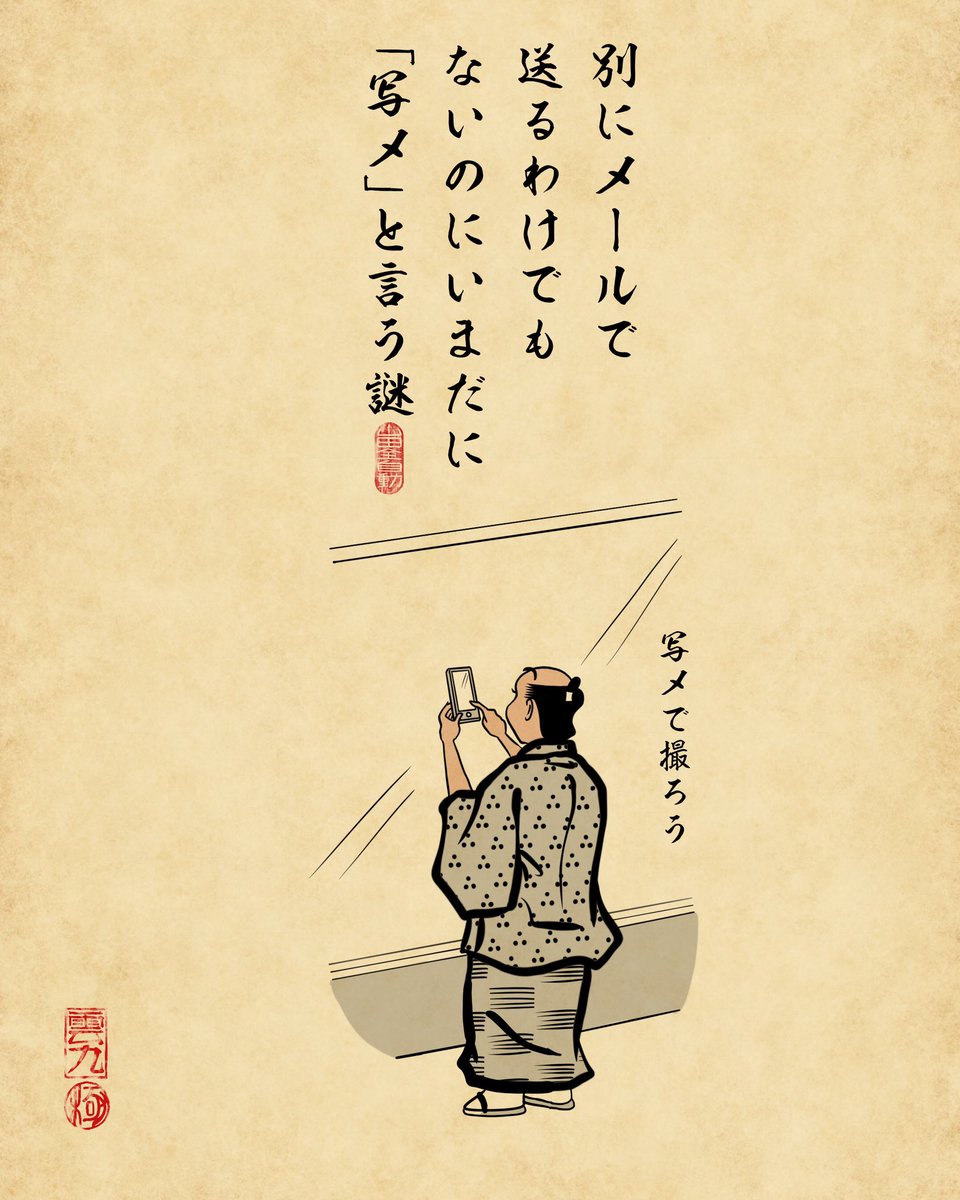 別にメールで
送るわけでも
ないのにいまだに
「写メ」と言う謎
写メで撮ろう